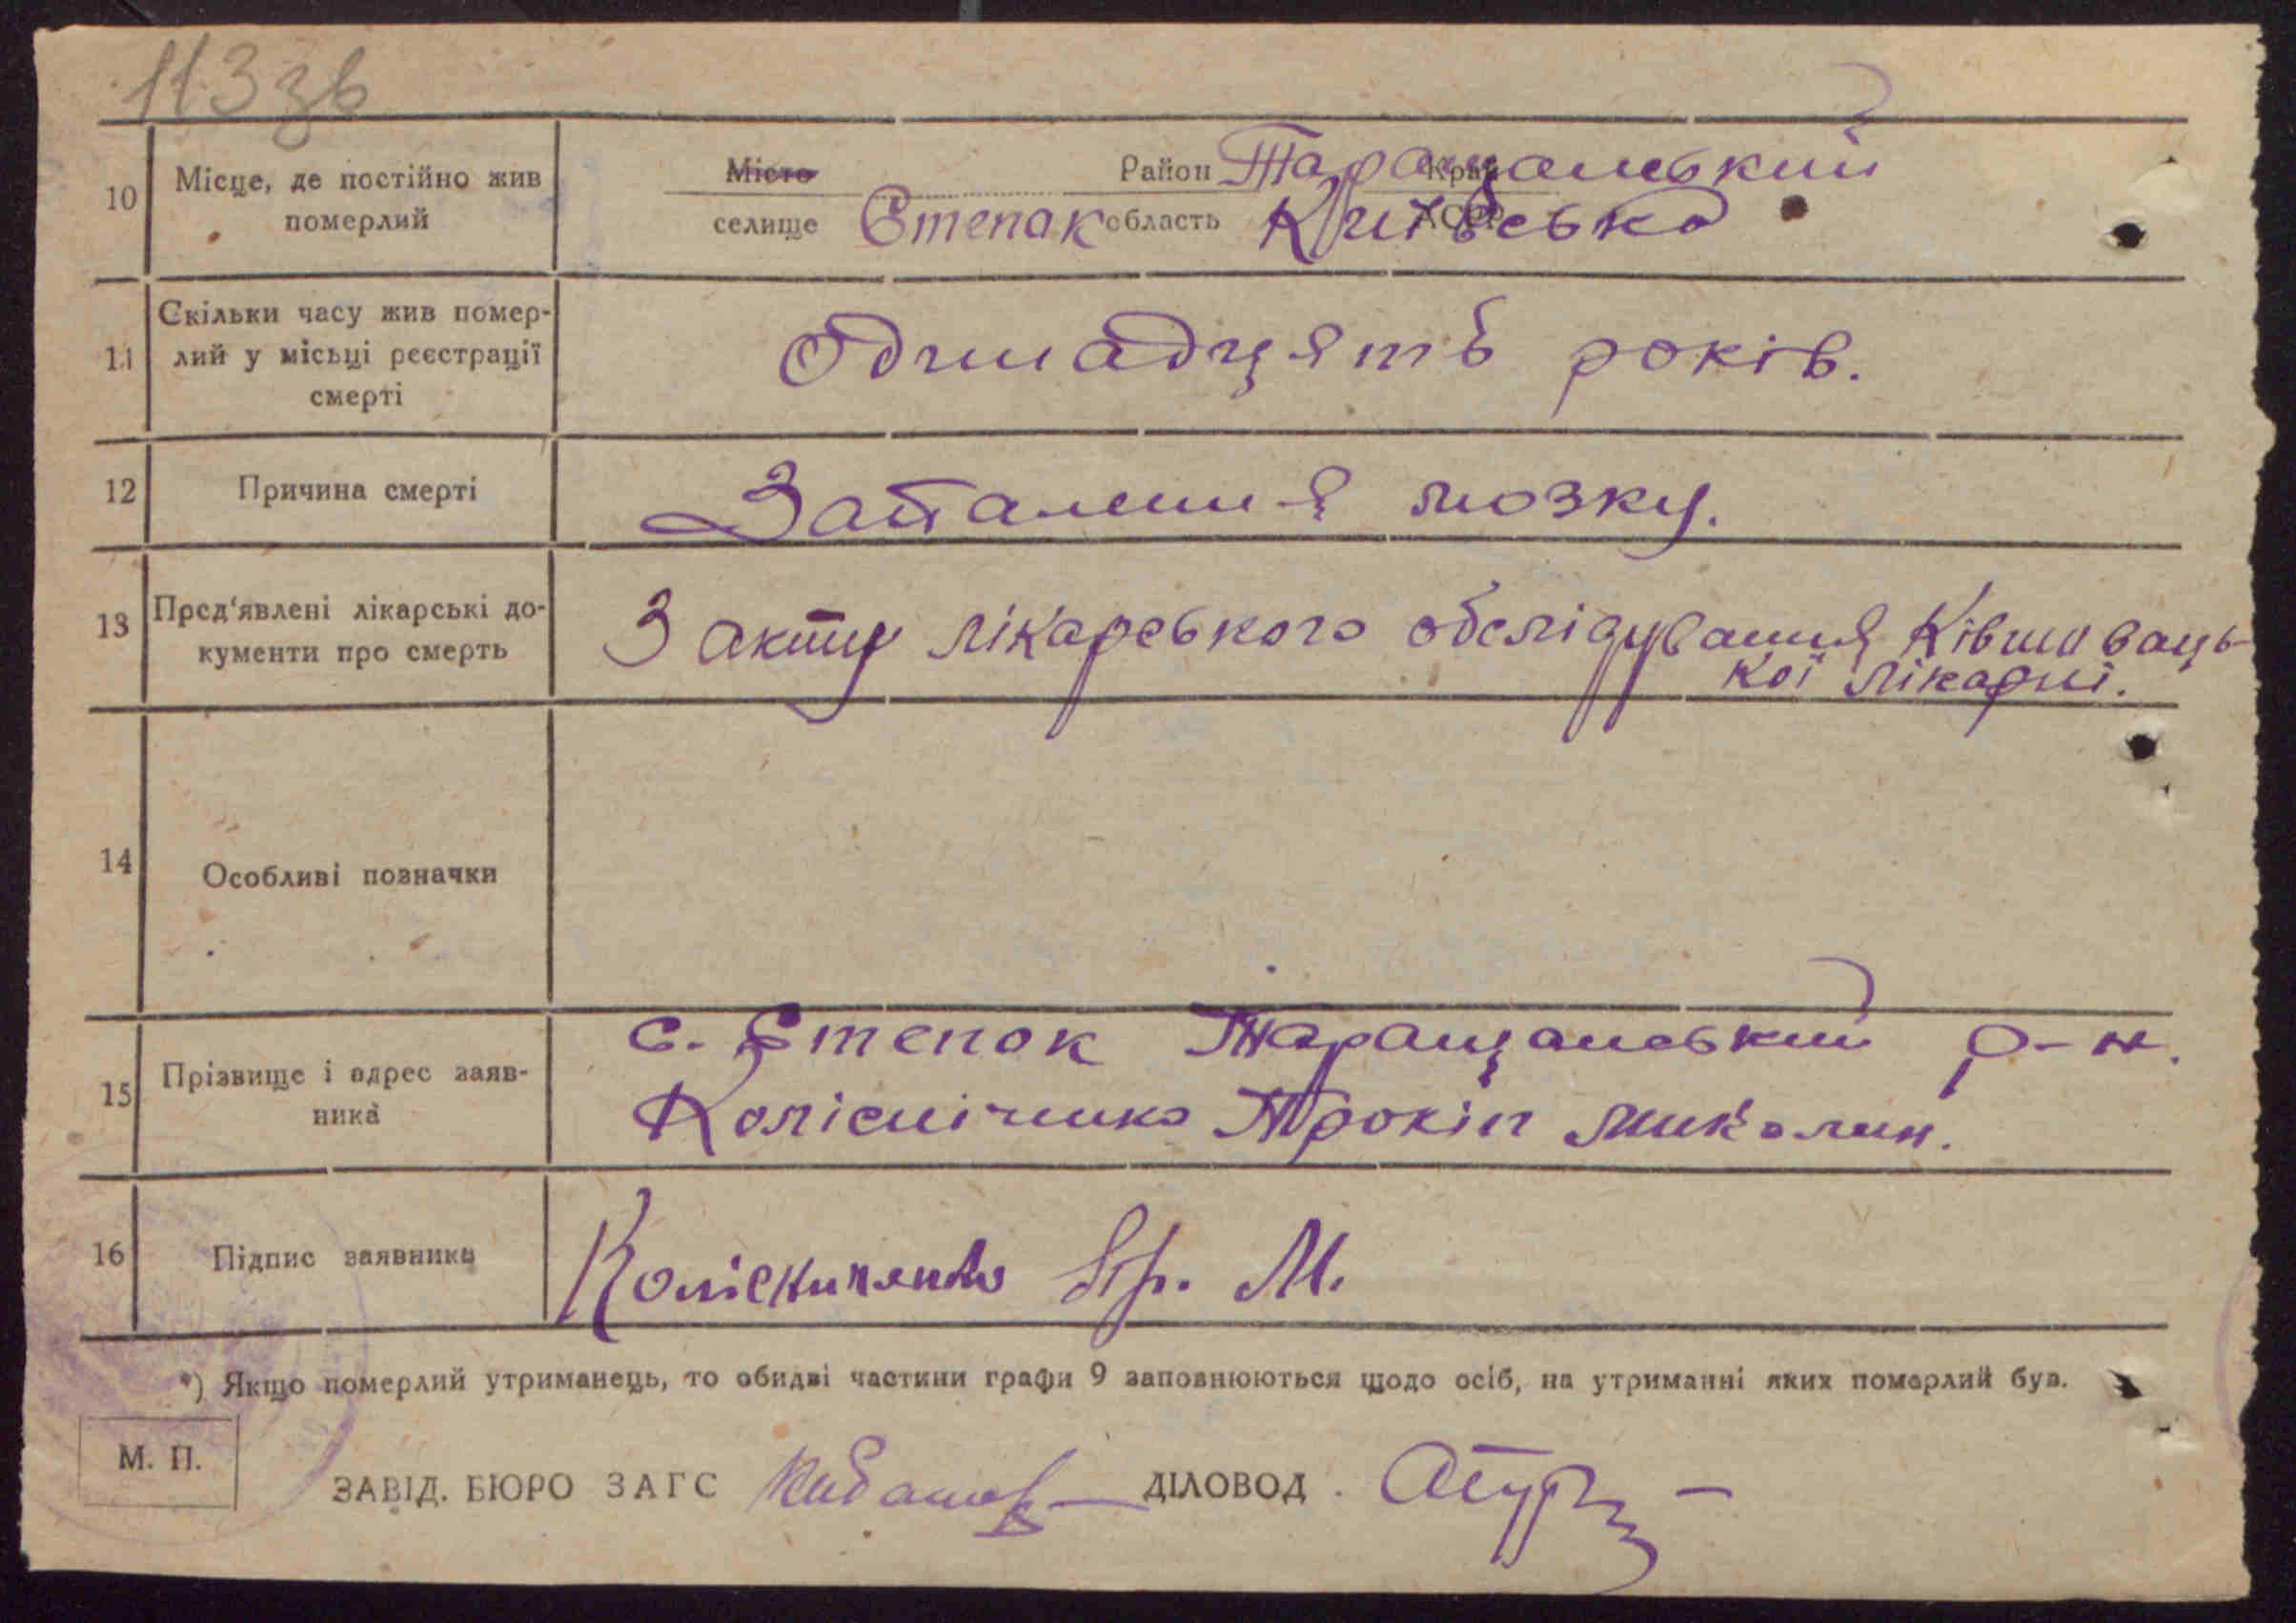 113 зв
10 Місце, де постійно жив померлий
Місто Район Таращанський Край
селище Степак область Київська АСРР
11 Скільки часу жив помер-
лий у місьці реєстрації
смерті
Одинадцять років.
12 Причина смерті Запалення мозку.
13 Пред'явлені лікарські до-
кументи про смерть
З акту лікарського обслідування Ківшоваць-
кої лікарні.
14 Особливі позначки
15 Прізвище і адрес заяв-
ника
с. Степок Таращанський р-н.
Коліснічинко Прокіп Миколин.
16 Підпис заявника Пр. М.
*) Якщо померлий утриманець, то обидві частини графи 9 заповнюються щодо осіб, на утриманні яких померлий був.
М. П.
ЗАВІД. БЮРО ЗАГС ДІЛОВОД